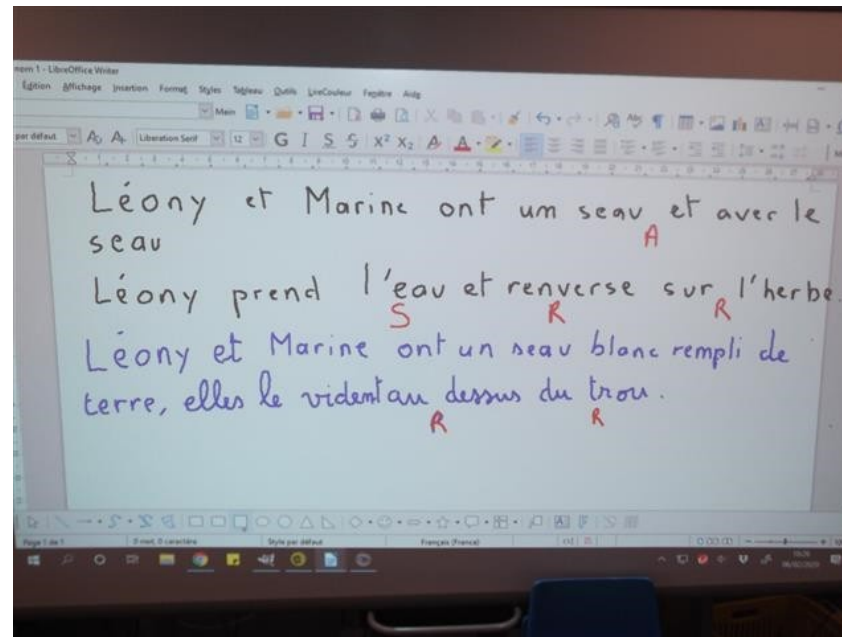 nom 1 - LibreOffice Writer
Édition Affichage Insertion Format Styles Tableau Outils LireCouleur Fenêtre Aide
Main
par défaut Liberation Serif 12 G I S S X² X₂ A A
Léony et Marine ont um seau et aver le
A
seau
Léony prend l'eau et renverse sur l'herbe.
S R R
Léony et Marine ont un seau blanc rempli de
terre, elles le vident au dessus du trou.
R R
Page 1 de 1 0 mot, 0 caractère Style par défaut Français (France)